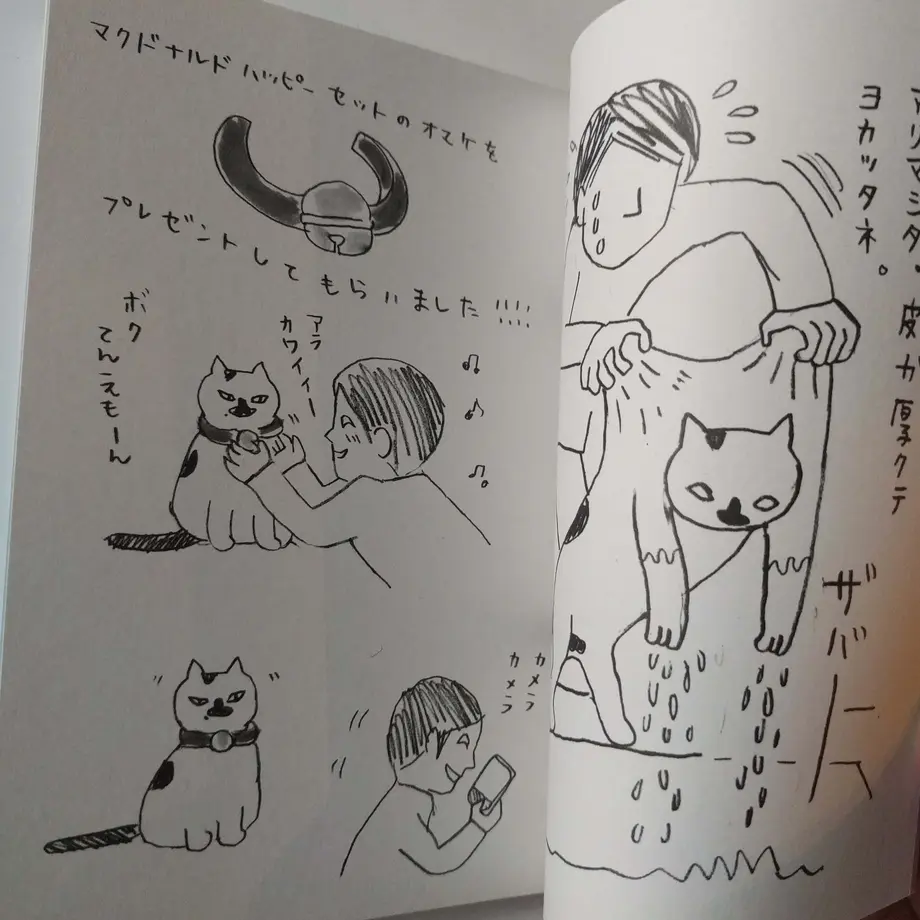 マクドナルド ハッピーセットのオマケを
プレゼントしてもらいました!!!!
アラ
カワイイー
ボク
てんえもーん
カメラ
カメラ
アリマシタ。皮ガ厚クテ
ヨカッタネ。
ザバーッ